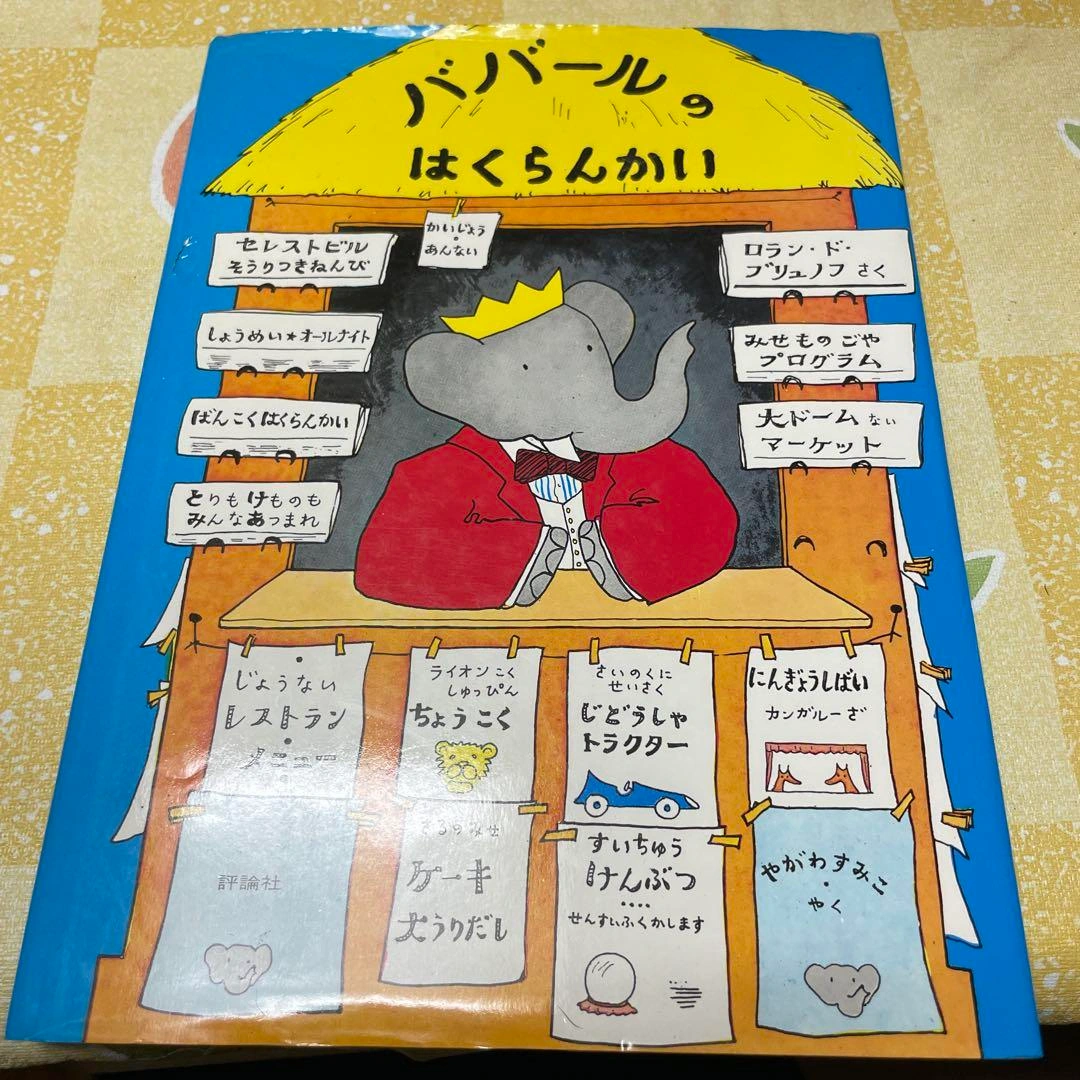 ババールの
はくらんかい
かいじょう
・
あんない
セレストビル
そうりつきねんび
しょうめい★オールナイト
ばんこくはくらんかい
とりもけものも
みんなあつまれ
ロラン・ド・
ブリュノフ さく
みせものごや
プログラム
大ドームない
マーケット
じょうない
レストラン
メニュー
ライオンこく
しゅっぴん
ちょうこく
さいのくに
せいさく
じどうしゃ
トラクター
にんぎょうしばい
カンガルーざ
評論社
さるのみせ
ケーキ
大うりだし
すいちゅう
けんぶつ
････
せんすいふくかします
やがわすみこ
・
やく